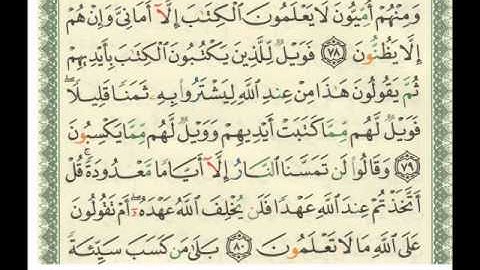 وَمِنْهُمْ أُمِّيُّونَ لَا يَعْلَمُونَ ٱلْكِتَٰبَ إِلَّآ أَمَانِىَّ وَإِنْ هُمْ
إِلَّا يَظُنُّونَ ٧٨ فَوَيْلٌ لِّلَّذِينَ يَكْتُبُونَ ٱلْكِتَٰبَ بِأَيْدِيهِمْ
ثُمَّ يَقُولُونَ هَٰذَا مِنْ عِندِ ٱللَّهِ لِيَشْتَرُوا۟ بِهِۦ ثَمَنًا قَلِيلًا ۖ
فَوَيْلٌ لَّهُم مِّمَّا كَتَبَتْ أَيْدِيهِمْ وَوَيْلٌ لَّهُم مِّمَّا يَكْسِبُونَ
٧٩ وَقَالُوا۟ لَن تَمَسَّنَا ٱلنَّارُ إِلَّآ أَيَّامًا مَّعْدُودَةً ۚ قُلْ
أَتَّخَذْتُمْ عِندَ ٱللَّهِ عَهْدًا فَلَن يُخْلِفَ ٱللَّهُ عَهْدَهُۥٓ ۖ أَمْ تَقُولُونَ
عَلَى ٱللَّهِ مَا لَا تَعْلَمُونَ ٨٠ بَلَىٰ مَن كَسَبَ سَيِّئَةً